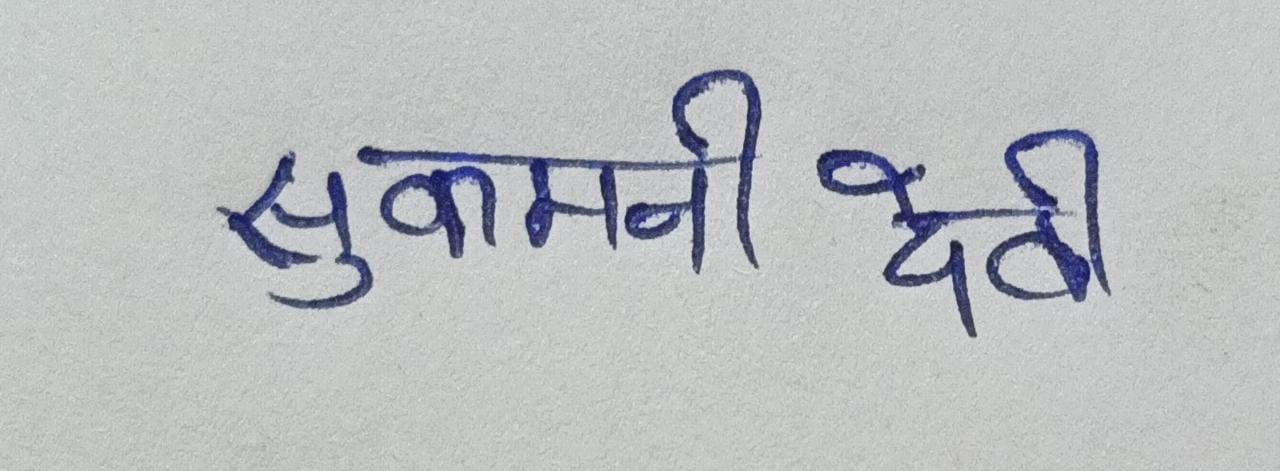 सुकमनी देवी